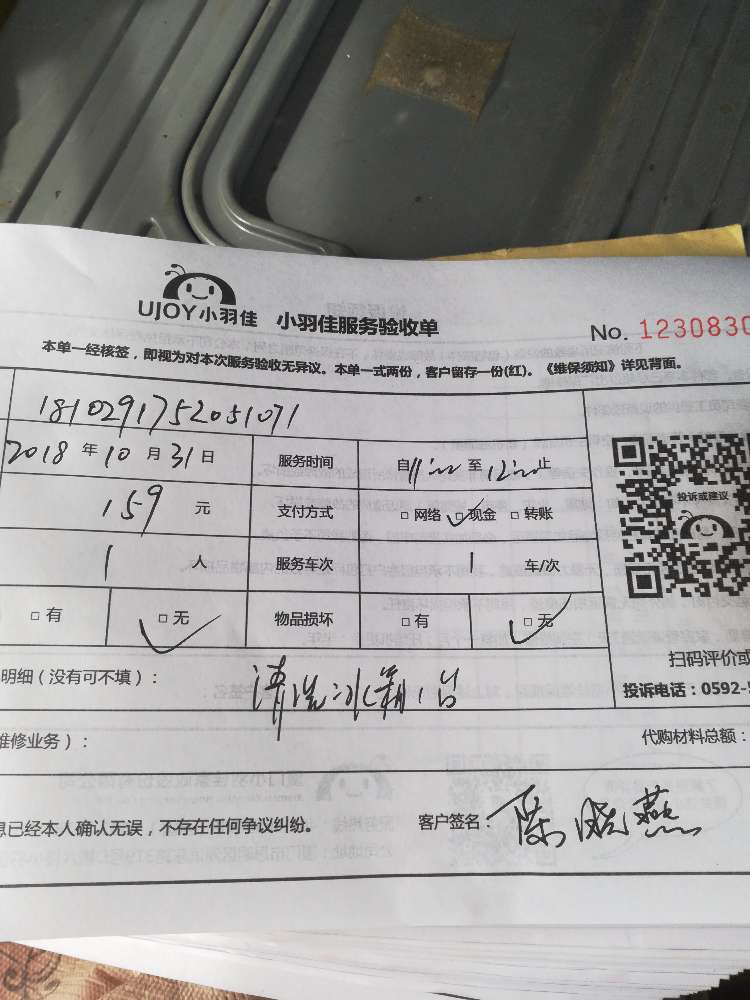 UJOY小羽佳 小羽佳服务验收单 No. 1230830
本单一经核签，即视为对本次服务验收无异议。本单一式两份，客户留存一份(红)。《维保须知》详见背面。
1810291752051071
2018 年 10 月 31 日 服务时间 自 11:00 至 12:00 止
159 元 支付方式 □ 网络 □ 现金 □ 转账
1 人 服务车次 1 车/次
□ 有 □ 无 物品损坏 □ 有 □ 无
投诉或建议
扫码评价或
明细（没有可不填）： 清洗冰箱1台 投诉电话：0592-5
维修业务）： 代购材料总额：
息已经本人确认无误，不存在任何争议纠纷。 客户签名： 陈晓燕